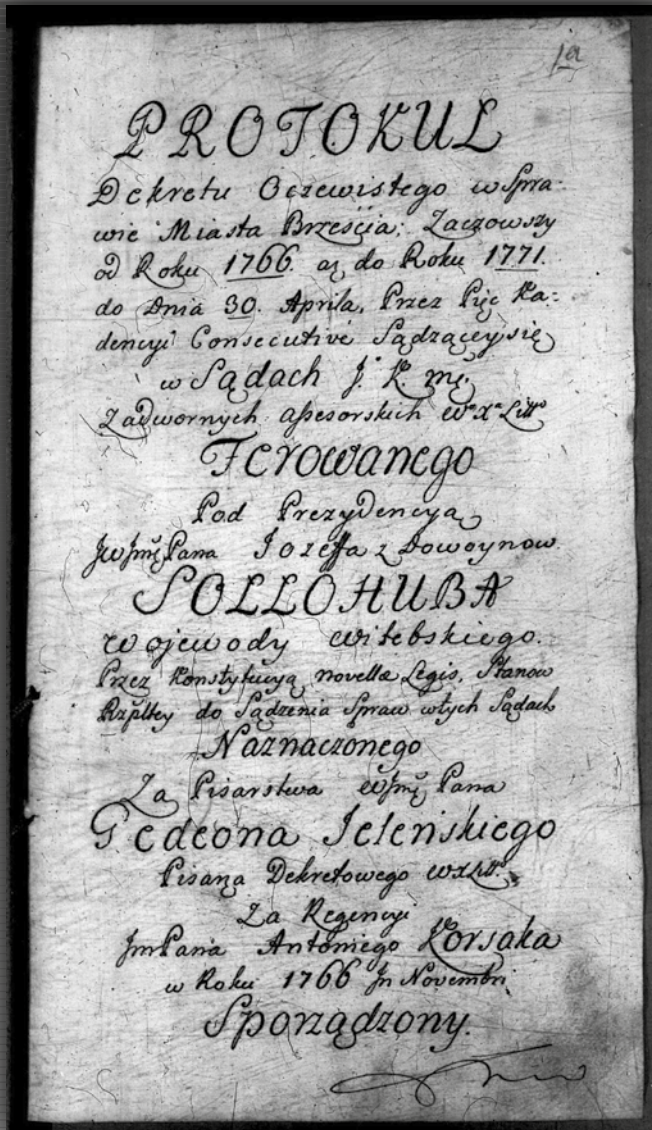 1a
PROTOKUŁ
Dekretu Oczewistego w Spra=
wie Miasta Brześćia; Zacząwszy
od Roku 1766. aż do Roku 1771.
do Dnia 30. Aprila, Przez Pięc Ka=
dencyi Consecutivé Sądzącey się
w Sądach J. K. mę.
Zadwornych assesorskich Wº Xª Littº
Ferowanego
Pod Prezydencyą
JW Jmę Pana Jozeffa z Dowoynow
SOLLOHUBA
Wojewody Witebskiego.
Przez Konstytucyą novellæ Legis, Stanow
Rzpltey do Sądzenia Spraw wtych Sądach
Naznaczonego
Za Pisarstwa W Jmę Pana
Gedeona Jeleńskiego
Pisarza Dekretowego WXLittº
Za Regencyi
Jm Pana Antoniego Korsaka
w Roku 1766 Jn Novembri
Sporządzony.